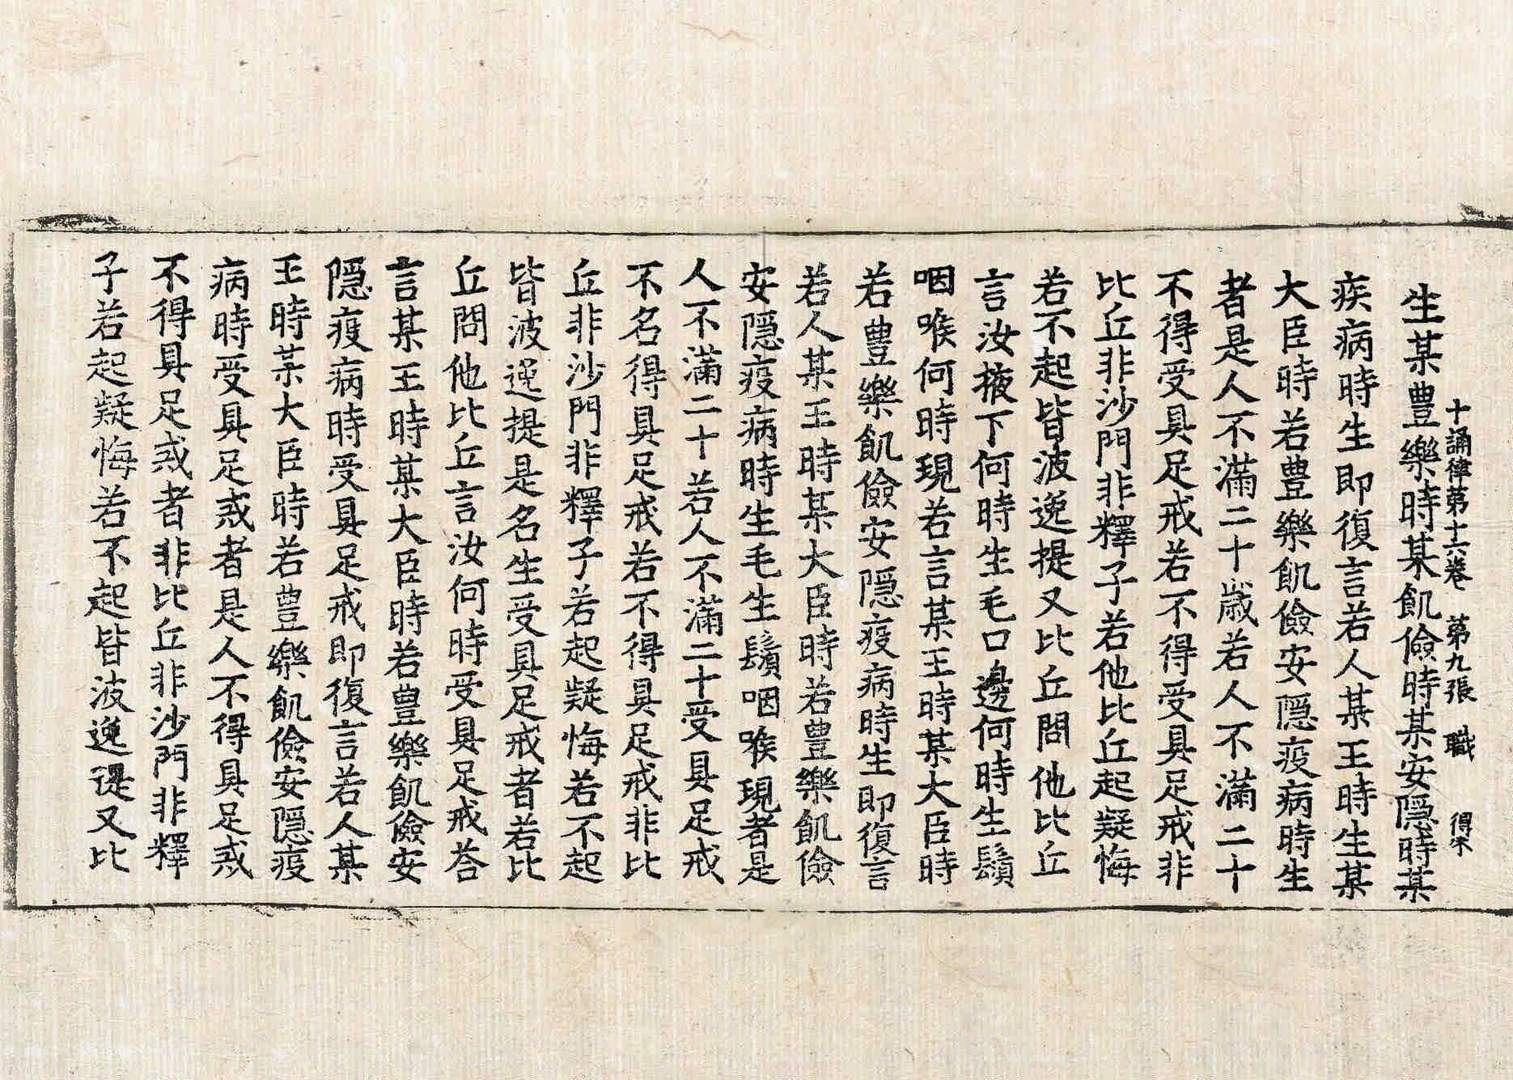 十誦律第十六卷 第九張 職 得
生某豊樂時某飢儉時某安隱時某
疾病時生即復言若人某王時生某
大臣時若豊樂飢儉安隱疫病時生
者是人不滿二十歲若人不滿二十
不得受具足戒若不得受具足戒非
比丘非沙門非釋子若他比丘起疑悔
若不起皆波逸提又比丘問他比丘
言汝掖下何時生毛口邊何時生鬚
咽喉何時現若言某王時某大臣時
若豊樂飢儉安隱疫病時生即復言
若人某王時某大臣時若豊樂飢儉
安隱疫病時生毛生鬚咽喉現者是
人不滿二十若人不滿二十受具足戒
不名得具足戒若不得具足戒非比
丘非沙門非釋子若起疑悔若不起
皆波逸提是名生受具足戒者若比
丘問他比丘言汝何時受具足戒荅
言某王時某大臣時若豊樂飢儉安
隱疫病時受具足戒即復言若人某
王時某大臣時若豊樂飢儉安隱疫
病時受具足戒者是人不得具足戒
不得具足戒者非比丘非沙門非釋
子若起疑悔若不起皆波逸提又比